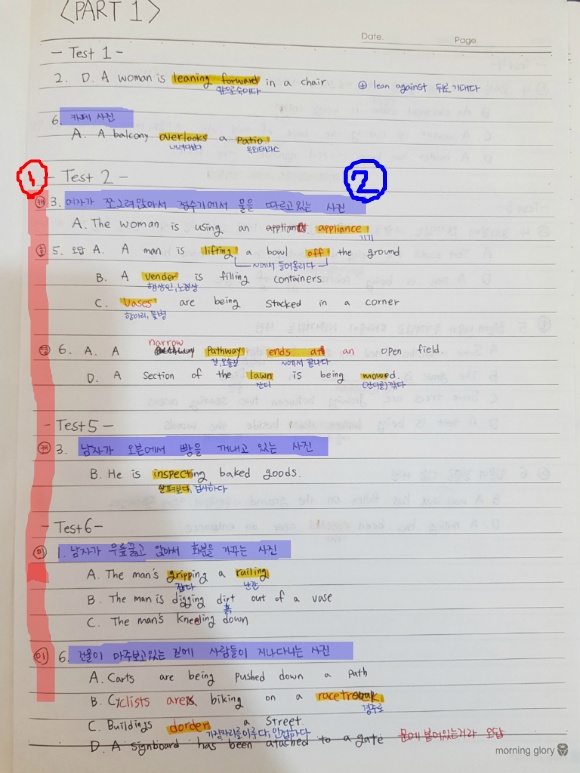 <PART 1>
Date.
Page
- Test 1 -
2. D. A woman is leaning forward in a chair ⊕ lean against 뒤로 기대다
앞으로 숙이다
6. 카페 사진
A. A balcony overlooks a patio
내려다보다 옥외테라스
① - Test 2 - ②
3. 여자가 쪼그려앉아서 정수기에서 물을 따르고있는 사진
A. The woman is using an appliance
기기
5. 오답 A. A man is lifting a bowl off the ground
~에서 들어올리다
B. A vender is filling containers.
행상인, 노점상
C. Vases are being stacked in a corner
항아리, 꽃병
6. A. A narrow pathway ends at an open field.
길, 오솔길 ~에서 끝나다
D. A section of the lawn is being mowed.
잔디 (잔디를) 깎다
- Test 5 -
3. 남자가 오븐에서 빵을 꺼내고 있는 사진
B. He is inspecting baked goods.
살펴보다, 검사하다
- Test 6 -
1. 남자가 무릎꿇고 앉아서 화분을 가꾸는 사진
A. The man's gripping a railing
잡다 난간
B. The man is digging dirt out of a vase
흙
C. The man's kneeling down
6. 건물이 마주보고있는 길에 사람들이 지나다니는 사진
A. Carts are being pushed down a path
B. Cyclists are biking on a racetrack
경주로
C. Buildings dorder a street.
가장자리를 이루다, 인접하다
D. A signboard has been attached to a gate 문에 붙어있는거라 오답
morning glory